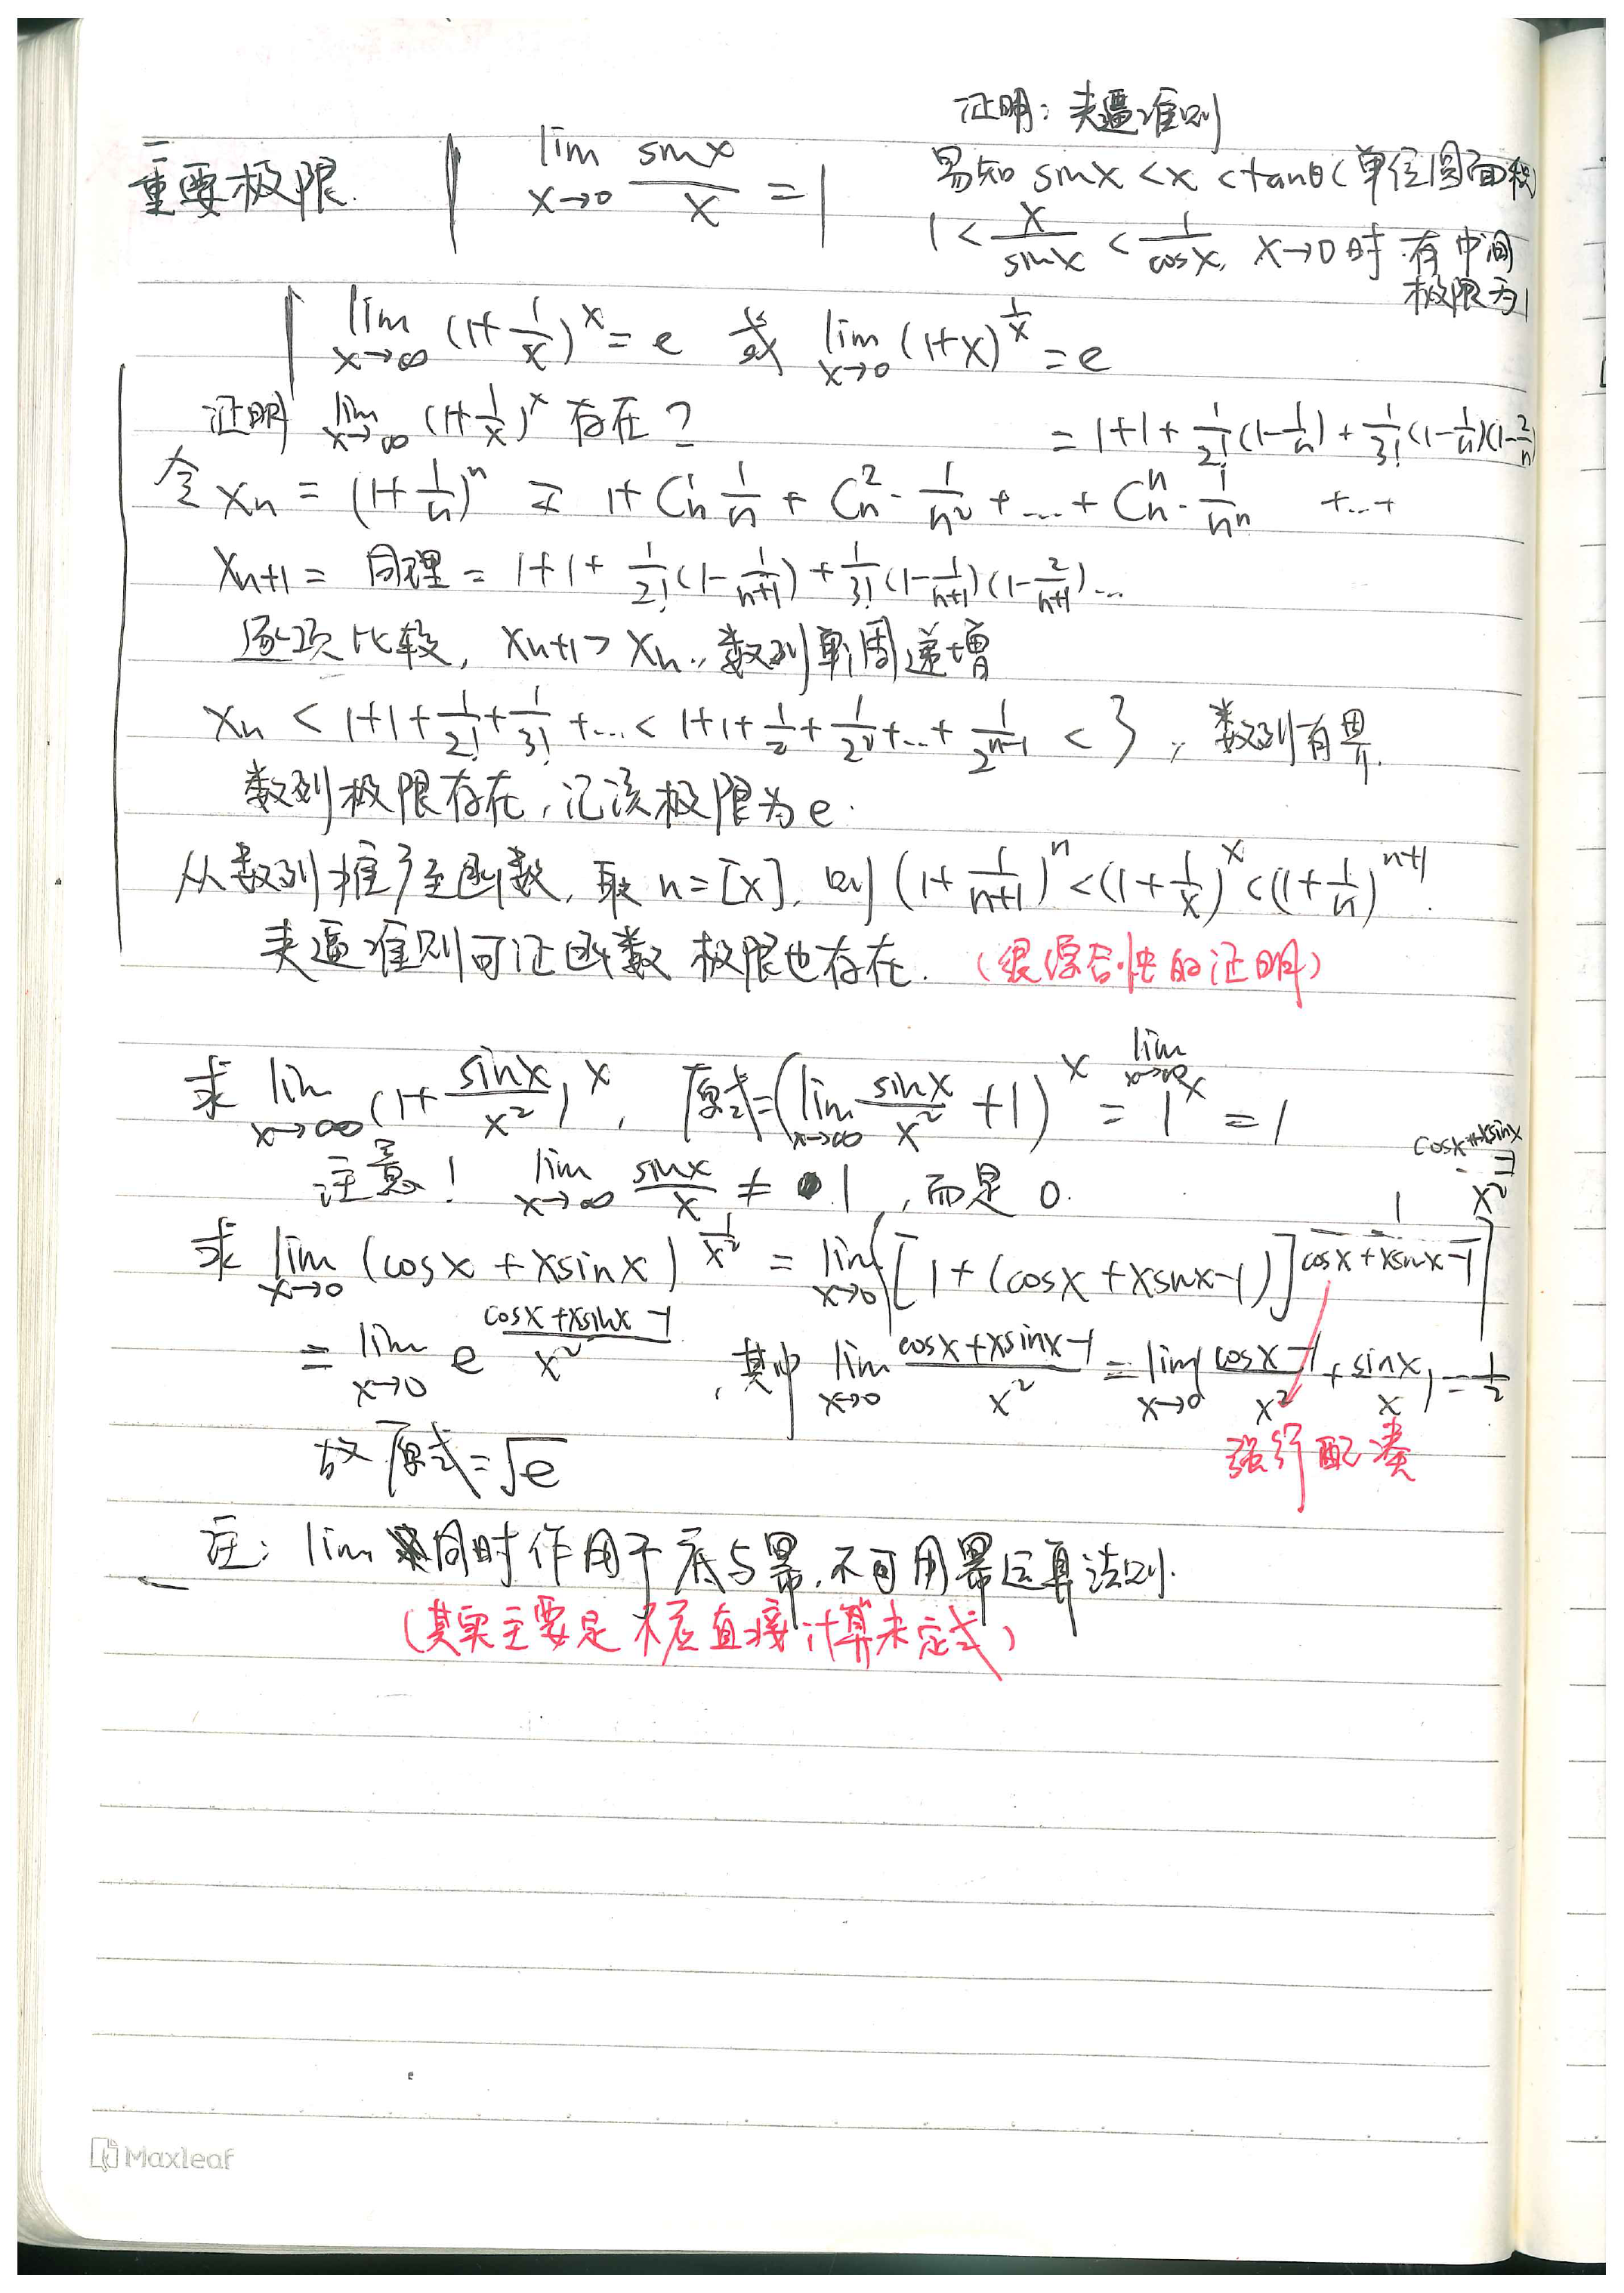 证明：夹逼准则
重要极限. lim x→0 sinx/x = 1
易知 sinx < x < tanθ (单位圆面积)
1 < x/sinx < 1/cosx, x→0时 有中间
极限为1
lim x→∞ (1+1/x)^x = e 或 lim x→0 (1+x)^(1/x) = e
证明 lim x→∞ (1+1/x)^x 存在？
= 1+1+1/2!(1-1/n)+1/3!(1-1/n)(1-2/n)
令 Xn = (1+1/n)^n = 1+Cn^1 1/n + Cn^2·1/n^2+…+Cn^n·1/n^n +…+
Xn+1 = 同理 = 1+1+1/2!(1-1/(n+1))+1/3!(1-1/(n+1))(1-2/(n+1))…
逐项比较, Xn+1 > Xn, 数列单调递增
Xn < 1+1+1/2!+1/3!+… < 1+1+1/2+1/2^2+…+1/2^(n-1) < 3, 数列有界.
数列极限存在, 记该极限为e.
从数列推广至函数, 取 n=[x], 则 (1+1/(n+1))^n < (1+1/x)^x < (1+1/n)^(n+1).
夹逼准则可证函数极限也存在. (很综合性的证明)
求 lim x→∞ (1+sinx/x^2)^x, 原式=(lim x→∞ sinx/x^2 +1)^(lim x→∞ x) = 1^x = 1
注意！ lim x→∞ sinx/x ≠ 1, 而是 0.
求 lim x→0 (cosx+xsinx)^(1/x^2) = lim x→0 {[1+(cosx+xsinx-1)]^(1/(cosx+xsinx-1))}^((cosx+xsinx-1)/x^2)
= lim x→0 e^((cosx+xsinx-1)/x^2), 其中 lim x→0 (cosx+xsinx-1)/x^2 = lim x→0 ((cosx-1)/x^2 + sinx/x) = 1/2
强行配凑
故原式=√e
注: lim 同时作用于底与幂, 不可用幂运算法则.
(其实主要是不应直接计算未定式)
Maxleaf